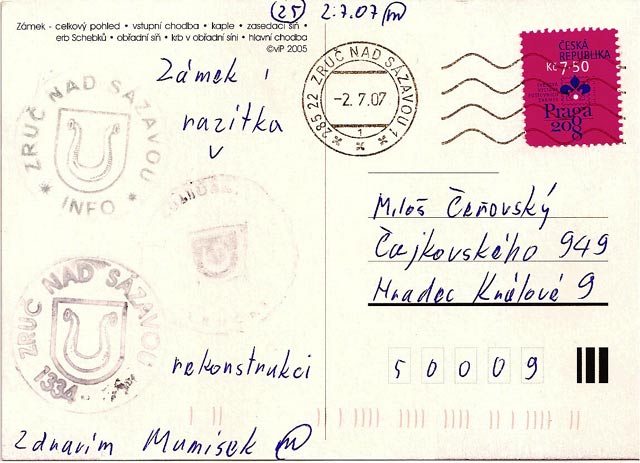 25 2.7.07
Zámek - celkový pohled • vstupní chodba • kaple • zasedací síň •
erb Schebků • obřadní síň • krb v obřadní síni • hlavní chodba
©viP 2005
Zámek i
razítka
v
rekonstrukci
Zdravím Mumisek
ZRUČ NAD SÁZAVOU
INFO
ZRUČ NAD SÁZAVOU
1334
285 22 ZRUČ NAD SÁZAVOU 1
-2.7.07
1
ČESKÁ
REPUBLIKA
Kč 7·50
Praga
2008
Miloš Čeňovský
Čajkovského 949
Hradec Králové 9
50009